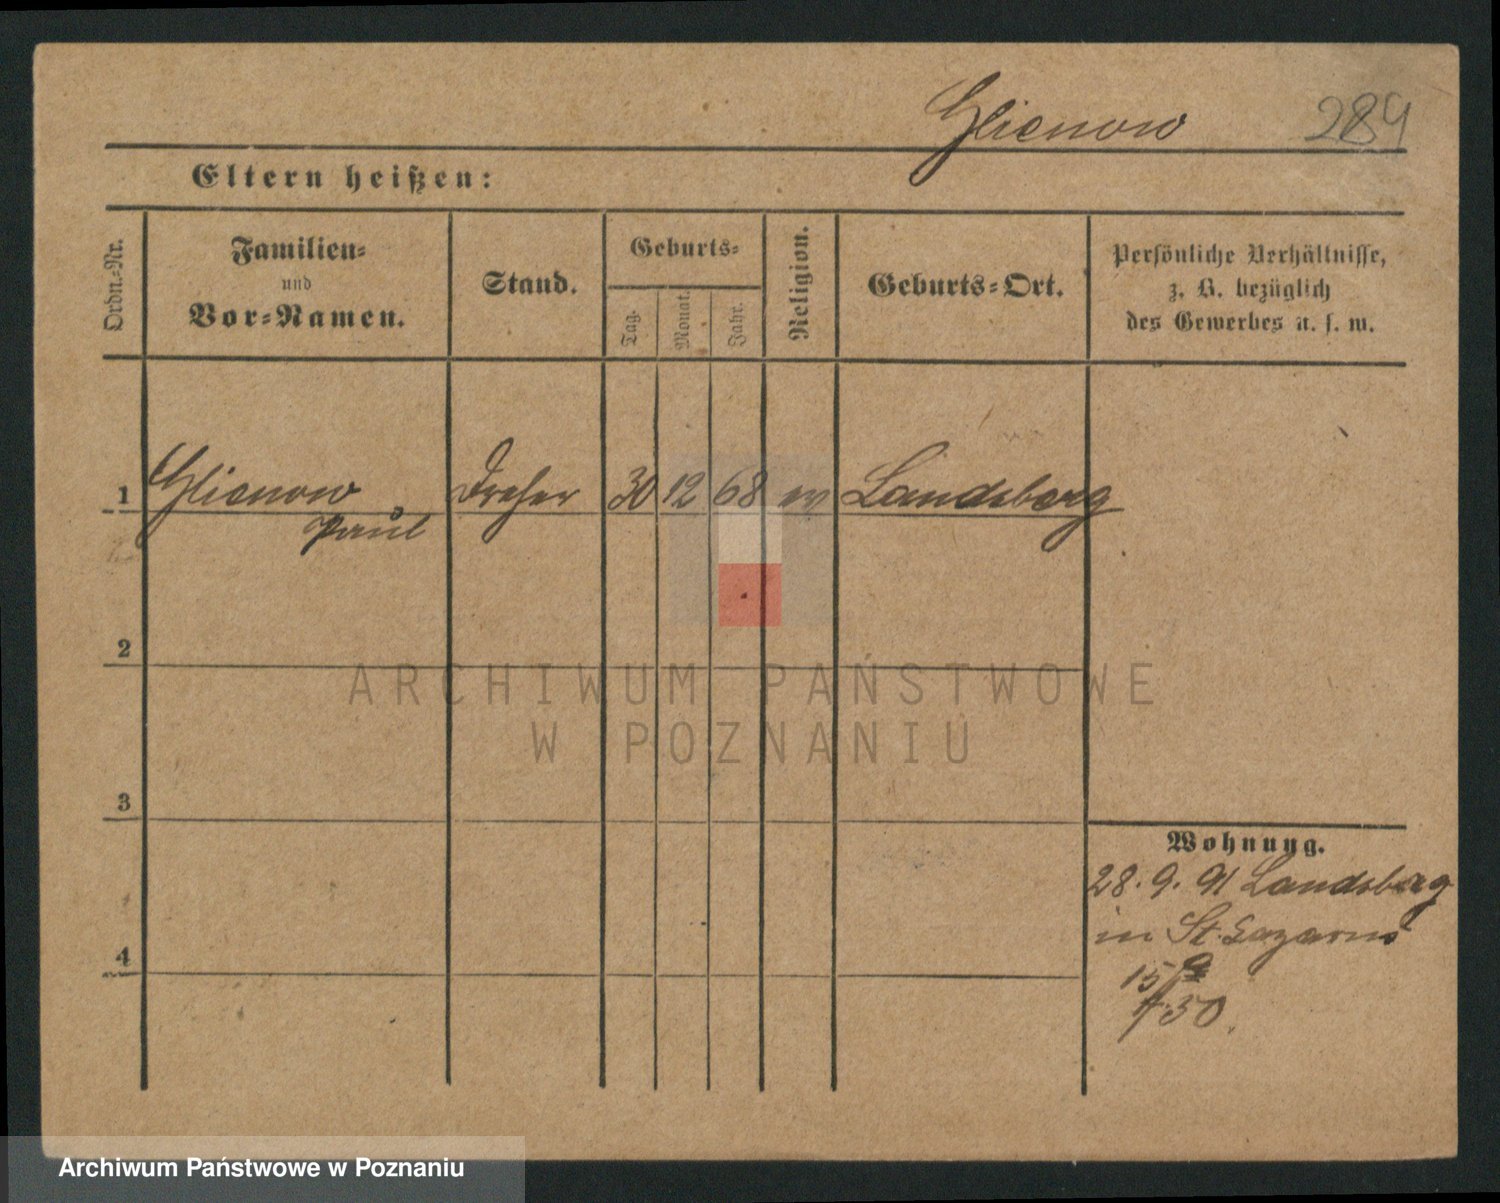 Glienow 289
Eltern heißen:
Ordn.-Nr.
Familien-
und
Vor-Namen.
Stand.
Geburts-
Tag.
Monat.
Jahr.
Religion.
Geburts-Ort.
Persönliche Verhältnisse,
z. B. bezüglich
des Gewerbes u. s. w.
1 Glienow Dreher 30 12 68 ev Landsberg
Paul
2
3
4
Wohnung.
28. 9. 91 Landsberg
in St. Lazarus
15
f. 30.
ARCHIWUM PAŃSTWOWE
W POZNANIU
Archiwum Państwowe w Poznaniu